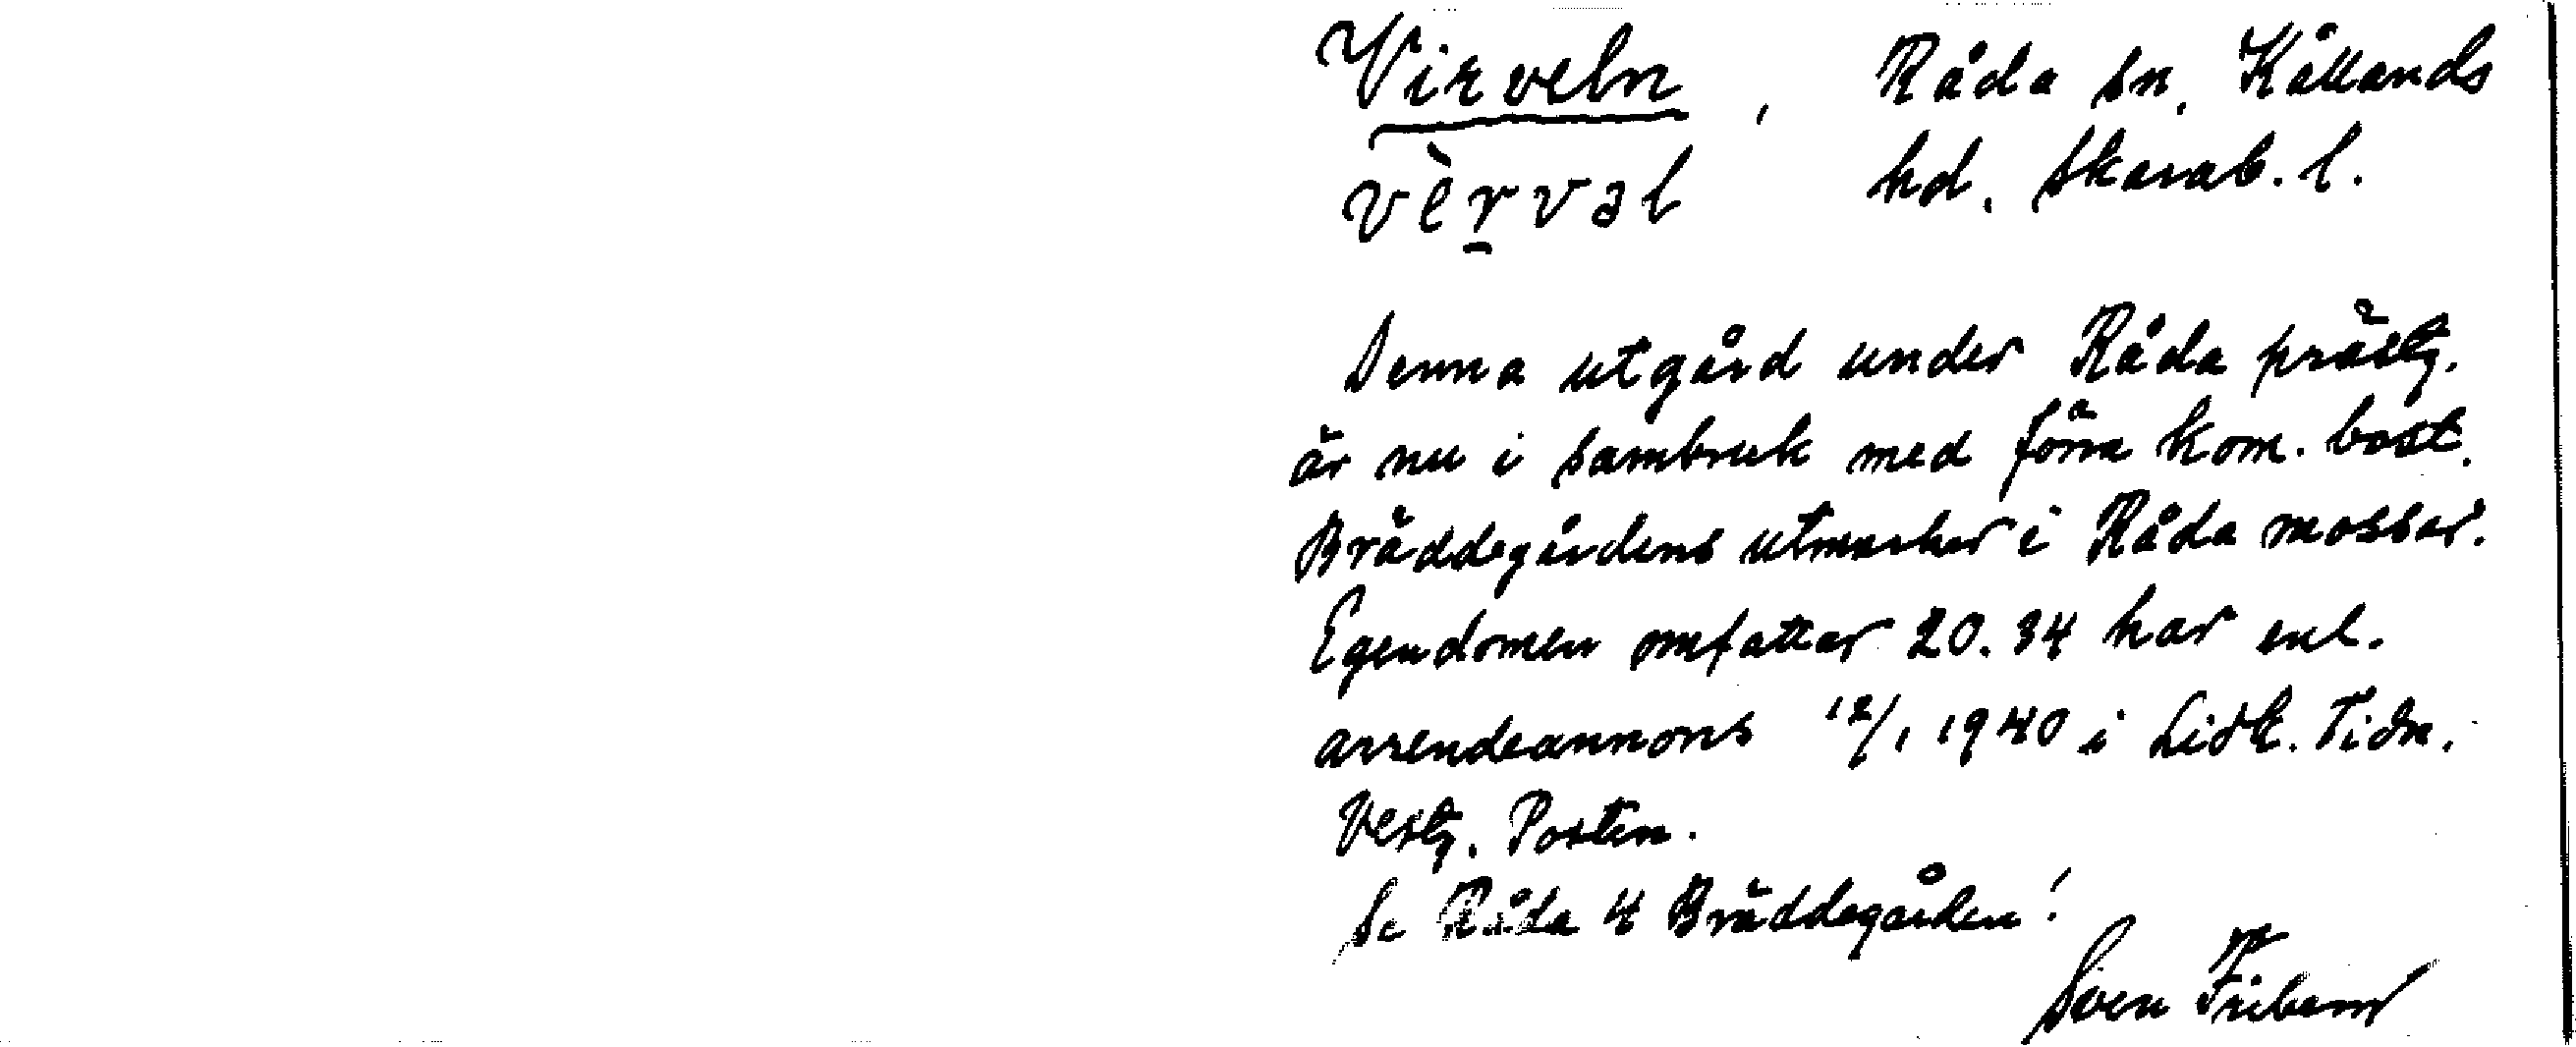 Virveln, Råda sn, Kållands
vèrvəl hd, Skarab. l.
Denna utgård under Råda prästg.
är nu i sambruk med förra kom. bost.
Bräddegårdens utmarker i Råda mossar.
Egendomen omfattar 20.34 har enl.
arrendeannons 12/1 1940 i Lidk. Tidn.
Vestg. Posten.
Se Råda 4 Bräddegården!
Sven